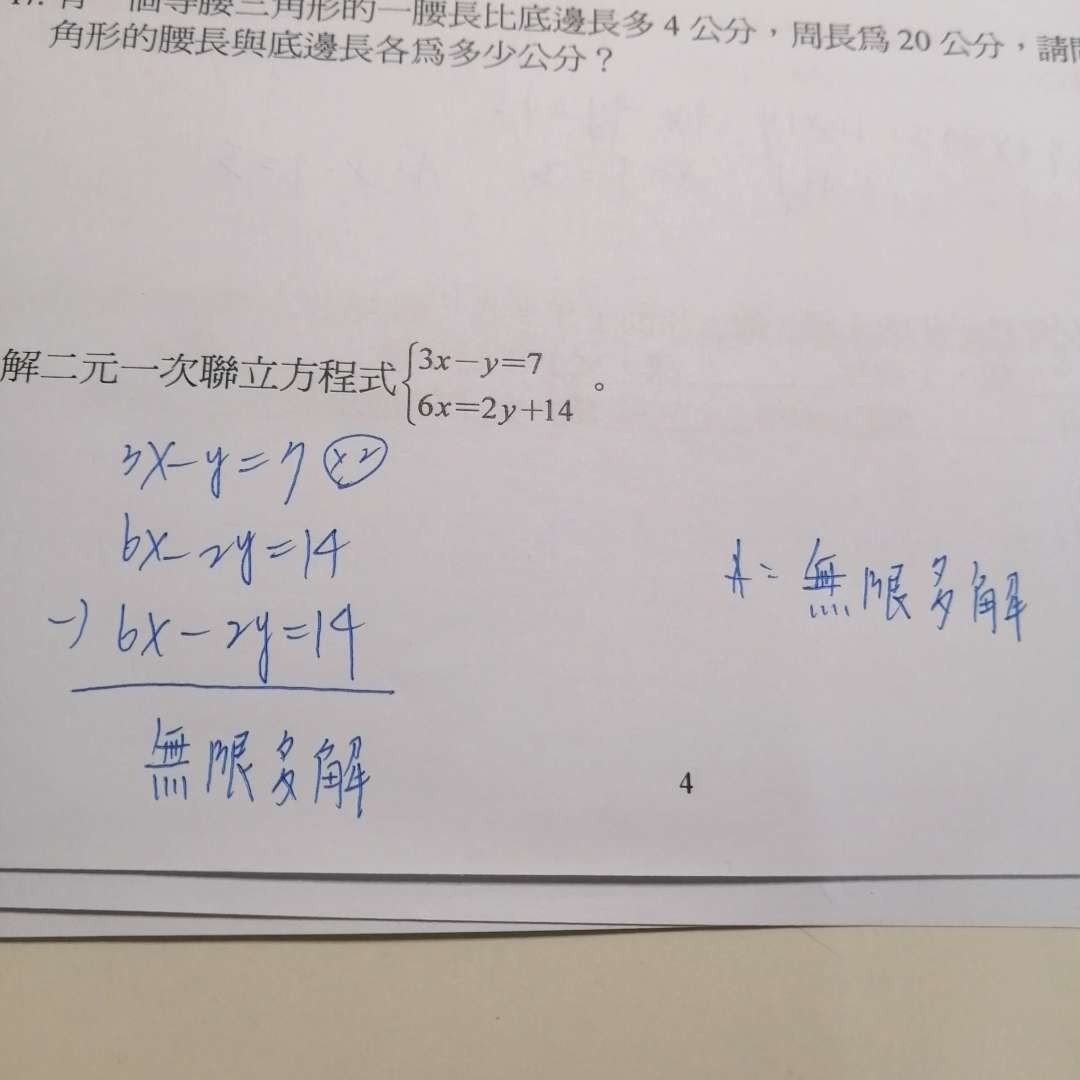 17. 有一個等腰三角形的一腰長比底邊長多 4 公分，周長爲 20 公分，請問
角形的腰長與底邊長各爲多少公分？
解二元一次聯立方程式{3x－y=7
6x=2y+14 。
3x－y=7 ×2
6x－2y=14
－) 6x－2y=14
無限多解
A= 無限多解
4